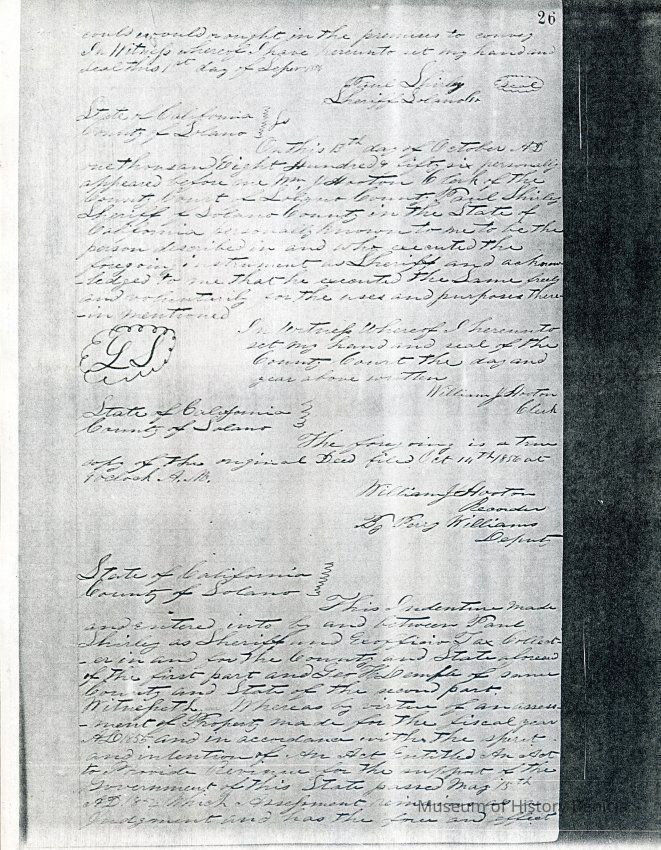 26
could or would or ought in the premises to convey
In Witness whereof I have hereunto set my hand and
seal this 1st day of Sept
Paul Shirly
Sheriff Solano Co
Seal
State of California
County of Solano
On this 13th day of October AD
one thousand Eight Hundred & fifty six personally
appeared before me Wm J Hooton Clerk of the
County Court & Solano County Paul Shirley
Sheriff & Solano County in the State of
California personally known to me to be the
person discribed in and who executed the
foregoin instrument as Sheriff and acknow
-ledged to me that he executed the same freely
and voluntarily for the uses and purposes there
-in mentioned
L S
In Witness Whereof I hereunto
set my hand and seal of the
County Court the day and
year above written
William J Hooton
Clerk
State of California
County of Solano
The foregoing is a true
copy of the original Deed filed Oct 14th 1856 at
oclock A.M.
William J Hooton
Recorder
By Williams
Deputy
State of California
County of Solano
This Indenture made
and entered into by and between Paul
Shirly as Sheriff and Exofficio Tax Collect-
-er in and for the County and State aforesaid
of the first part and Geo of same
County and State of the second part.
Witnesseth Whereas by virtue of an assess-
-ment of Property made for the fiscal year
AD 1855 and in accordance with the spirit
and intention of An Act Entitled An Act
to Provide Revenue for the support of the
Government of this State passed May 15th
AD Which Assessment
Judgment and has the force and effect
Museum of History Benicia